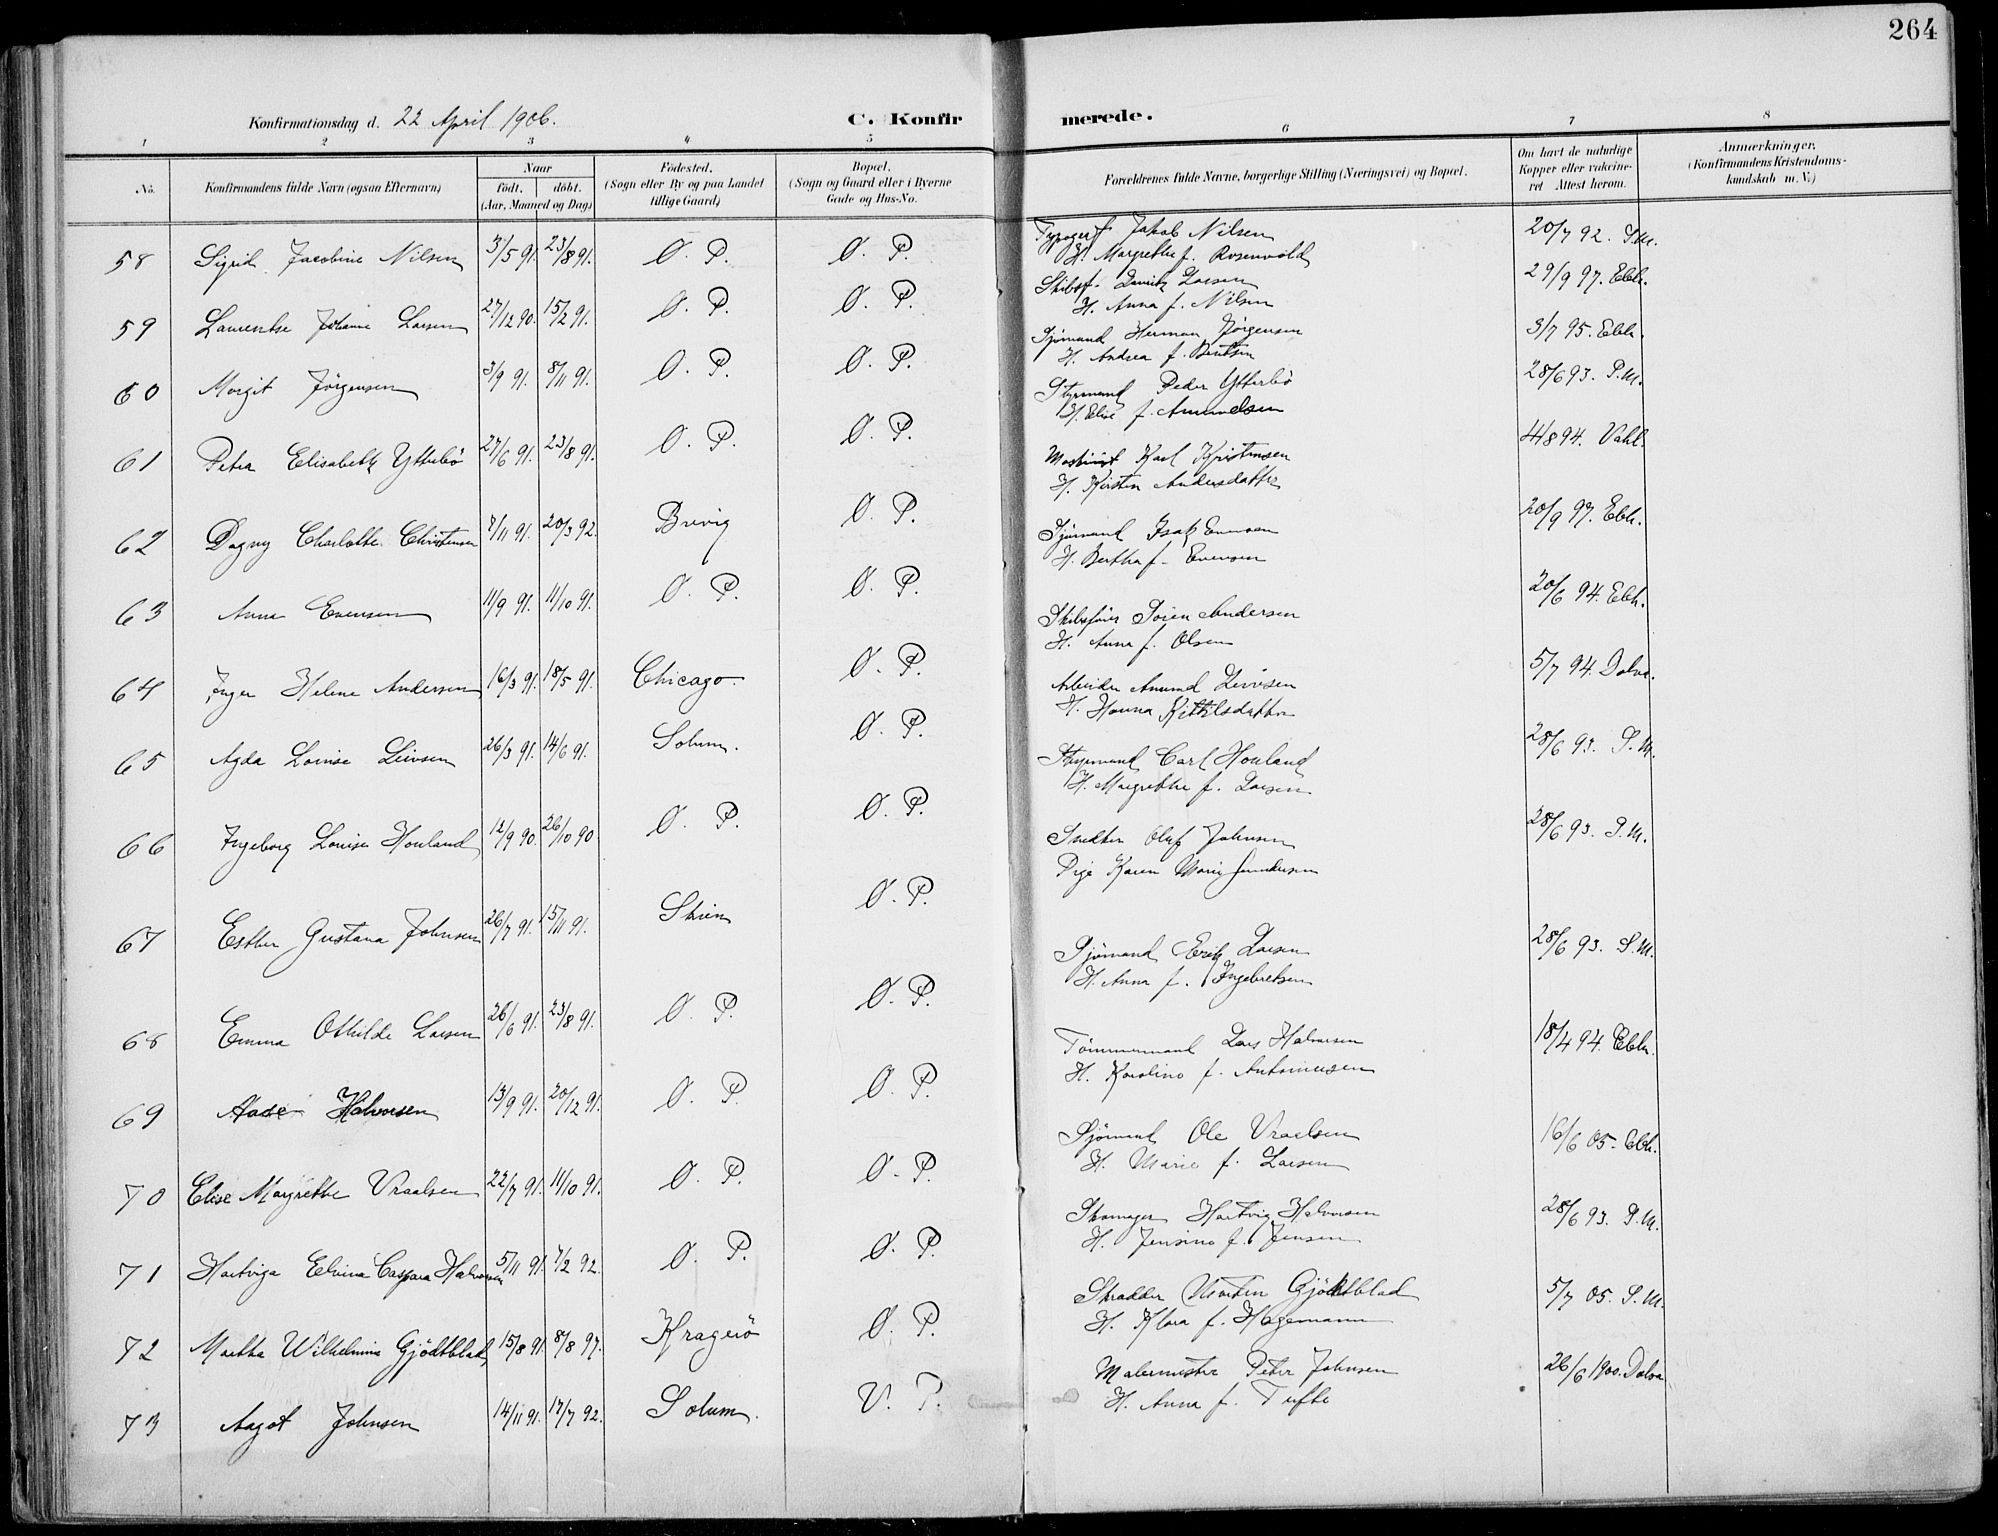 264
Konfirmationsdag d. 22 April 1906.
C. Konfirmerede.
1 2 3 4 5 6 7 8
No.
Konfirmandens fulde Navn (ogsaa Efternavn)
Naar
født. døbt.
(Aar, Maaned og Dag)
Fødested.
(Sogn eller By og paa Landet
tillige Gaard)
Bopæl.
(Sogn og Gaard eller i Byerne
Gade og Hus-No.
Forældrenes fulde Navne, borgerlige Stilling (Næringsvei) og Bopæl.
Om havt de naturlige
Kopper eller vakcine-
ret Attest herom.
Anmærkninger.
(Konfirmandens Kristendoms-
kundskab m. V.)
58 Sigrid Jacobine Nilsen 3/5 91. 23/8 91. Ø. P. Ø. P. Typograf Jakob Nilsen 20/7 92. P.M.
H. Margrethe f. Rosenvold
59 Laurentse Johanne Larsen 27/12 90. 15/2 91. Ø. P. Ø. P. Skibsf. Larsen 29/9 97. Ebh.
H. Anna f. Nilsen
60 Margit Jörgensen 3/9 91. 8/11 91. Ø. P. Ø. P. Sjømand Herman Jörgensen 3/7 95. Ebh.
H. Andrea f. Bentsen
61 Petra Elisabeth Ytterbö 27/6 91. 23/8 91. Ø. P. Ø. P. Styrmand Peder Ytterbö 28/6 93. P.M.
H. Elise f. Amundsen
62 Dagny Charlotte Christensen 7/11 91. 20/3 92. Brevig Ø. P. Maskinist Karl Kristensen 4/8 94. Vahl.
H. Kirsten Andersdatter
63 Anna Evensen 11/9 91. 11/10 91. Ø. P. Ø. P. Sjømand Isak Evensen 20/9 97. Ebh.
H. Bertha f. Evensen
64 Inger Helene Andersen 16/3 91. 18/5 91. Chicago. Ø. P. Skibsfører Sören Andersen 20/6 94. Ebh.
H. Anna f. Olsen
65 Agda Louise Leivsen 26/3 91. 14/6 91. Solum. Ø. P. Arbeider Amund Leivsen 5/7 94. Dalva.
H. Hanna Kittilsdatter
66 Ingeborg Louise Houland 12/9 90. 26/10 90. Ø. P. Ø. P. Styrmand Carl Houland 28/6 93. P.M.
H. Margrethe f. Larsen
67 Esther Gustava Johnsen 26/7 91. 15/11 91. Skien Ø. P. Snedker Oluf Johnsen 28/6 93. P.M.
Pige Karen Marie Gundersen
68 Emma Othilde Larsen 26/6 91. 23/8 91. Ø. P. Ø. P. Sjømand Erik Larsen 28/6 93. P.M.
H. Anna f. Ingebretsen
69 Aase Halvorsen 13/9 91. 20/12 91. Ø. P. Ø. P. Tömmermand Lars Halvorsen 18/4 94. Ebh.
H. Karoline f. Antonisen
70 Elise Margrethe Vraalsen 22/7 91. 11/10 91. Ø. P. Ø. P. Sjømand Ole Vraalsen 16/6 05. Ebh.
H. Marie f. Larsen
71 Hartviga Elvina Caspara Halvorsen 5/11 91. 7/2 92. Ø. P. Ø. P. Skomager Hartvig Halvorsen 28/6 93. P.M.
H. Jensine f. Jensen
72 Martha Wilhelmine Gjödtblad 15/8 91. 8/8 97. Kragerö Ø. P. Skrædder Morten Gjödtblad 5/7 05. P.M.
H. Klara f. Hagemann
73 Aagot Johnsen 14/11 91. 17/7 92. Solum. V. P. Malermester Peter Johnsen 26/6 1900. Dalva
H. Anna f. Tufte